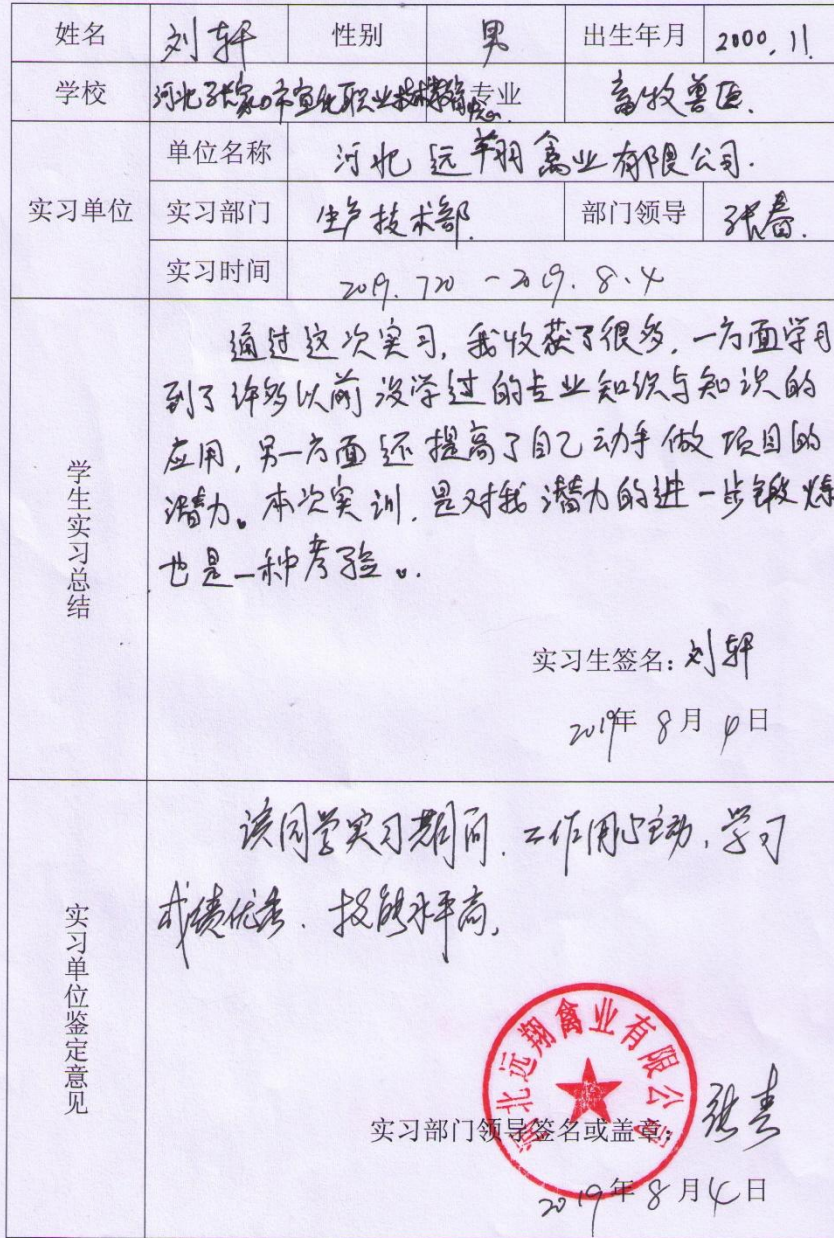 姓名 刘轩 性别 男 出生年月 2000.11.
学校 河北张家口市宣化职业技术教育中心 专业 畜牧兽医.
实习单位
单位名称 河北远翔禽业有限公司.
实习部门 生产技术部. 部门领导 张春.
实习时间 2019.7.20 - 2019.8.4
学生实习总结
通过这次实习,我收获了很多,一方面学习
到了许多以前没学过的专业知识与知识的
应用,另一方面还提高了自己动手做项目的
潜力。本次实训,是对我潜力的进一步锻炼
也是一种考验。
实习生签名: 刘轩
2019年 8月 4日
实习单位鉴定意见
该同学实习期间,工作用心主动,学习
成绩优秀,技能水平高。
河北远翔禽业有限公司
实习部门领导签名或盖章: 张春
2019年 8月 4日